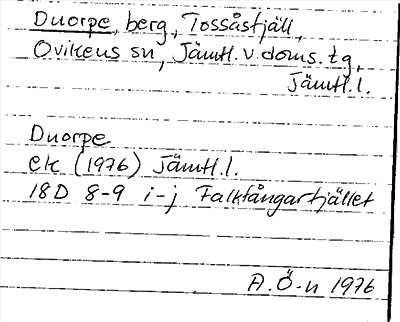 Duorpe, berg, Tossåsfjäll,
Ovikens sn, Jämtl. v. doms. tg,
Jämtl. l.
Duorpe
ek (1976) Jämtl. l.
18D 8-9 i-j Falkfångarfjället
A. Ö-n 1976